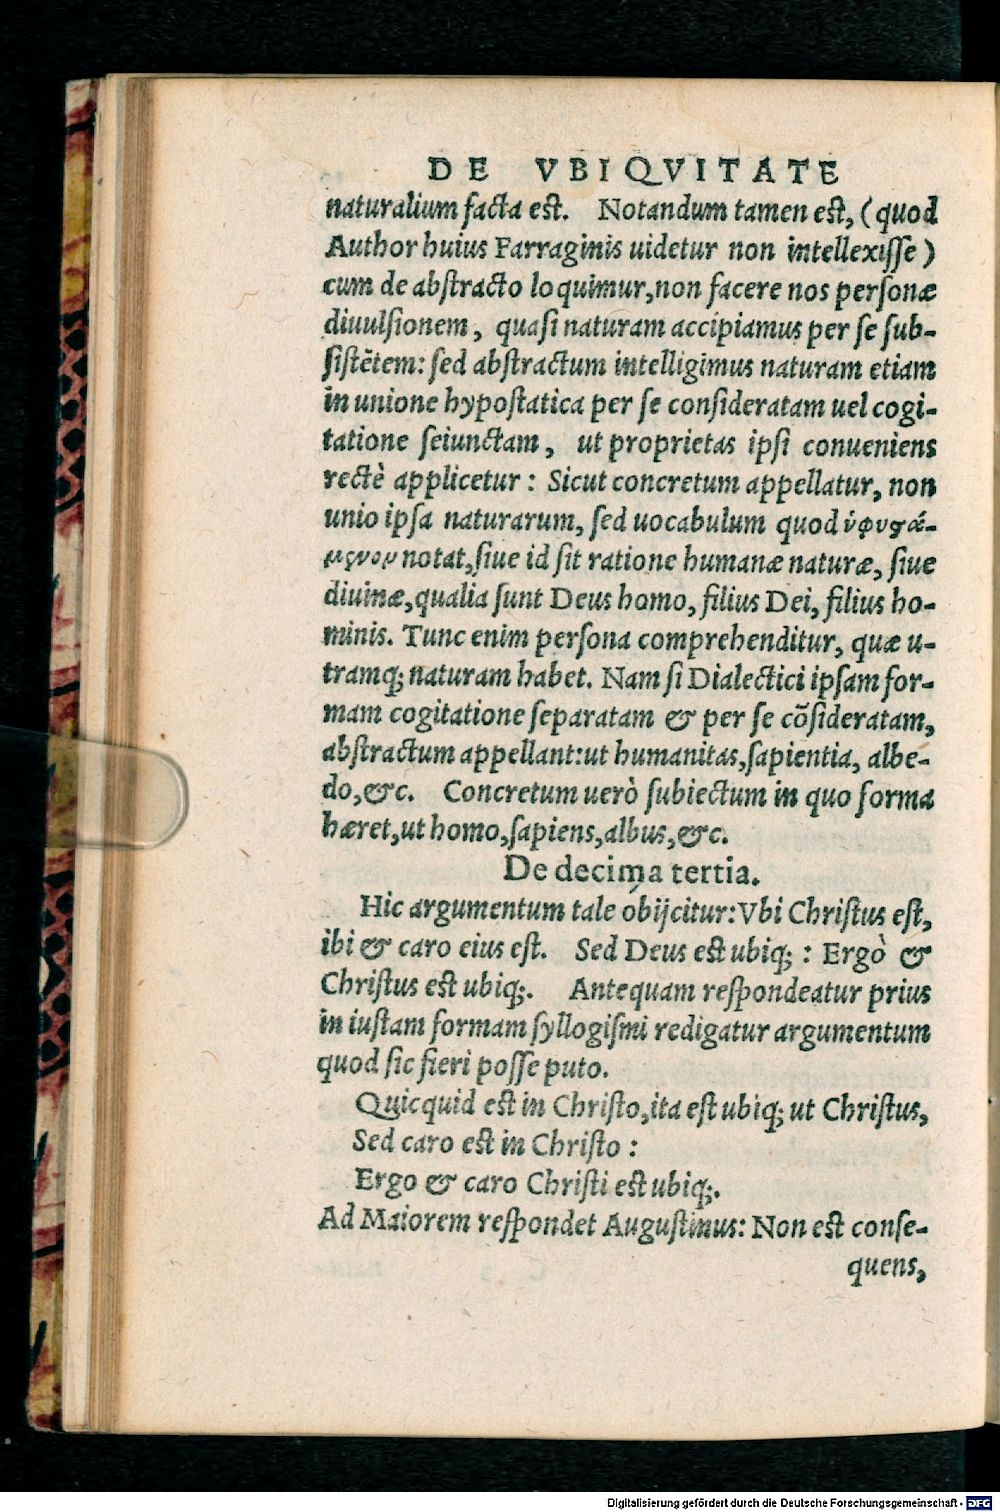 DE VBIQVITATE
naturalium facta est. Notandum tamen est, (quod
Author huius Farraginis uidetur non intellexisse)
cum de abstracto loquimur, non facere nos personæ
diuulsionem, quasi naturam accipiamus per se sub-
sistẽtem: sed abstractum intelligimus naturam etiam
in unione hypostatica per se consideratam uel cogi-
tatione seiunctam, ut proprietas ipsi conueniens
rectè applicetur: Sicut concretum appellatur, non
unio ipsa naturarum, sed uocabulum quod ὑφυϛά-
μενον notat, siue id sit ratione humanæ naturæ, siue
diuinæ, qualia sunt Deus homo, filius Dei, filius ho-
minis. Tunc enim persona comprehenditur, quæ u-
tramq; naturam habet. Nam si Dialectici ipsam for-
mam cogitatione separatam & per se cõsideratam,
abstractum appellant: ut humanitas, sapientia, albe-
do, &c. Concretum uerò subiectum in quo forma
hæret, ut homo, sapiens, albus, &c.
De decima tertia.
Hic argumentum tale obijcitur: Vbi Christus est,
ibi & caro eius est. Sed Deus est ubiq; : Ergò &
Christus est ubiq;. Antequam respondeatur prius
in iustam formam syllogismi redigatur argumentum
quod sic fieri posse puto.
Quicquid est in Christo, ita est ubiq; ut Christus,
Sed caro est in Christo :
Ergo & caro Christi est ubiq;.
Ad Maiorem respondet Augustinus: Non est conse-
quens,
Digitalisierung gefördert durch die Deutsche Forschungsgemeinschaft - DFG